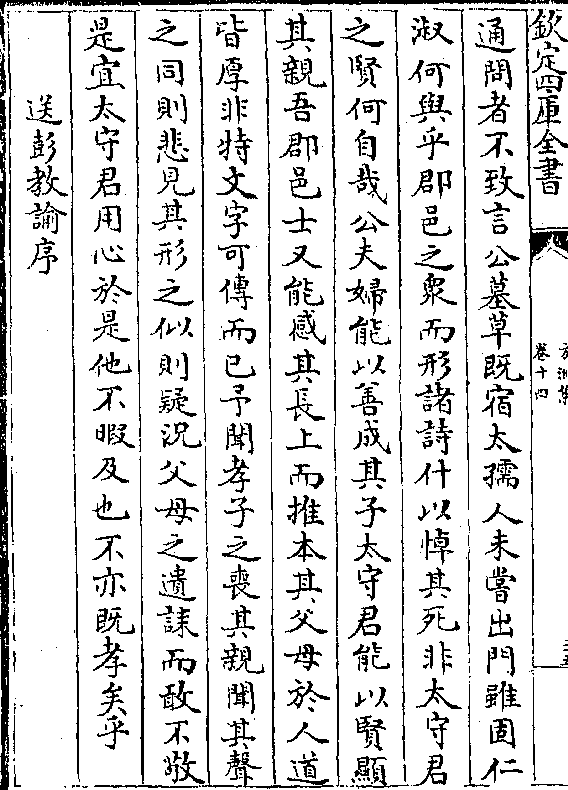 欽定四庫全書
卷十四
通問者不致言公墓草既宿太孺人未嘗出門雖固仁
淑何與乎郡邑之衆而形諸詩什以悼其死非太守君
之賢何自哉公夫婦能以善成其子太守君能以賢顯
其親吾郡邑士又能感其長上而推本其父母於人道
皆厚非特文字可傳而已予聞孝子之喪其親聞其聲
之同則悲見其形之似則疑況父母之遺誄而敢不敬
是宜太守君用心於是他不暇及也不亦既孝矣乎
送彭教諭序